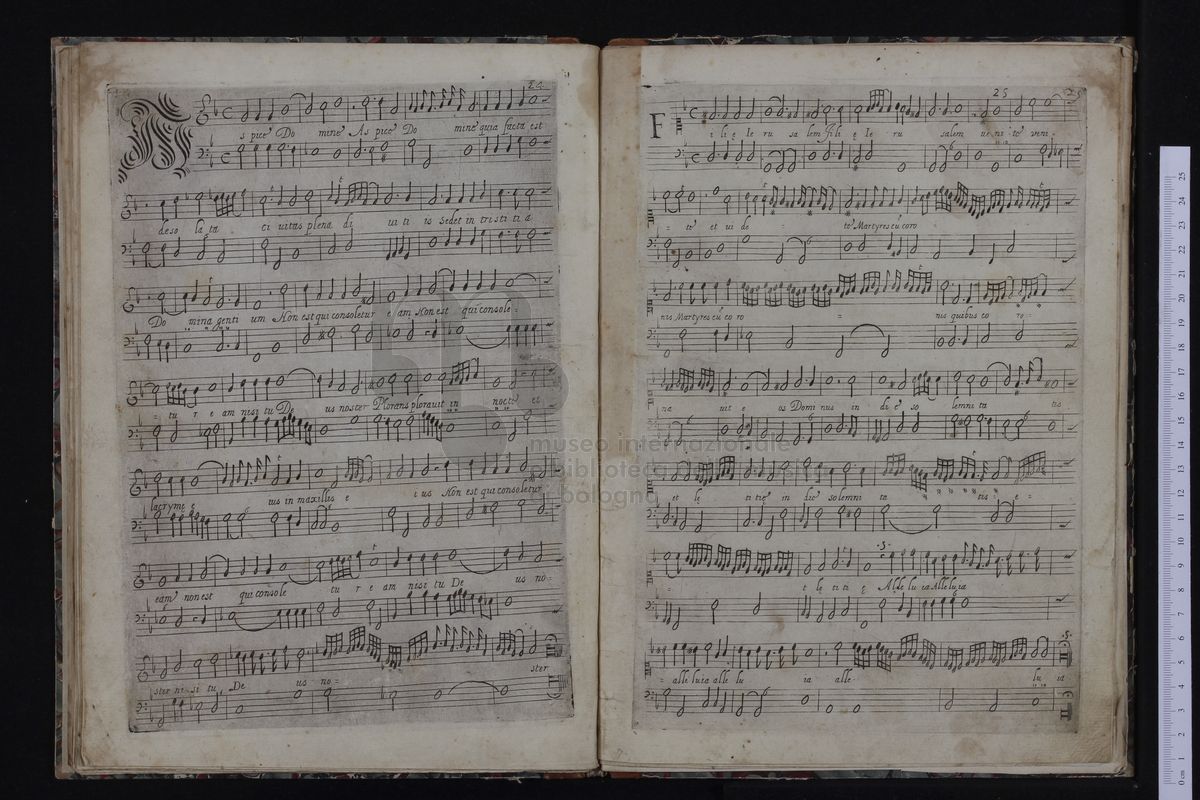 24
A
spice Do mine As pice Do mine quia facta est
deso la ta ci uitas plena di ui ti is Sedet in tristi ti a
Do mina genti um Non est qui consoletur e am Non est qui console-
tu r e am nisi tu De us noster Plorans plorauit in nocte et
lacryme e ius in maxillis e ius Non est qui consoletur
eam non est qui console tu r e am nisi tu De us no-
ster ni si tu De us no- ster
25
F
i li ę Ie ru sa lem fili ę Ie ru salem ue ni te veni-
te et ui de te Martyres cū coro
nis Martyres cū co ro nis quibus co ro-
na uit e os Domi nus in di e so lemni ta tis
et lę ti tię in die solemni ta tis e-
t lę ti ti ę Alle lu ia Alle luia
alle luia alle lu ia alle- lu ia
museo internazionale
biblioteca della musica
bologna
0 cm 1 2 3 4 5 6 7 8 9 10 11 12 13 14 15 16 17 18 19 20 21 22 23 24 25